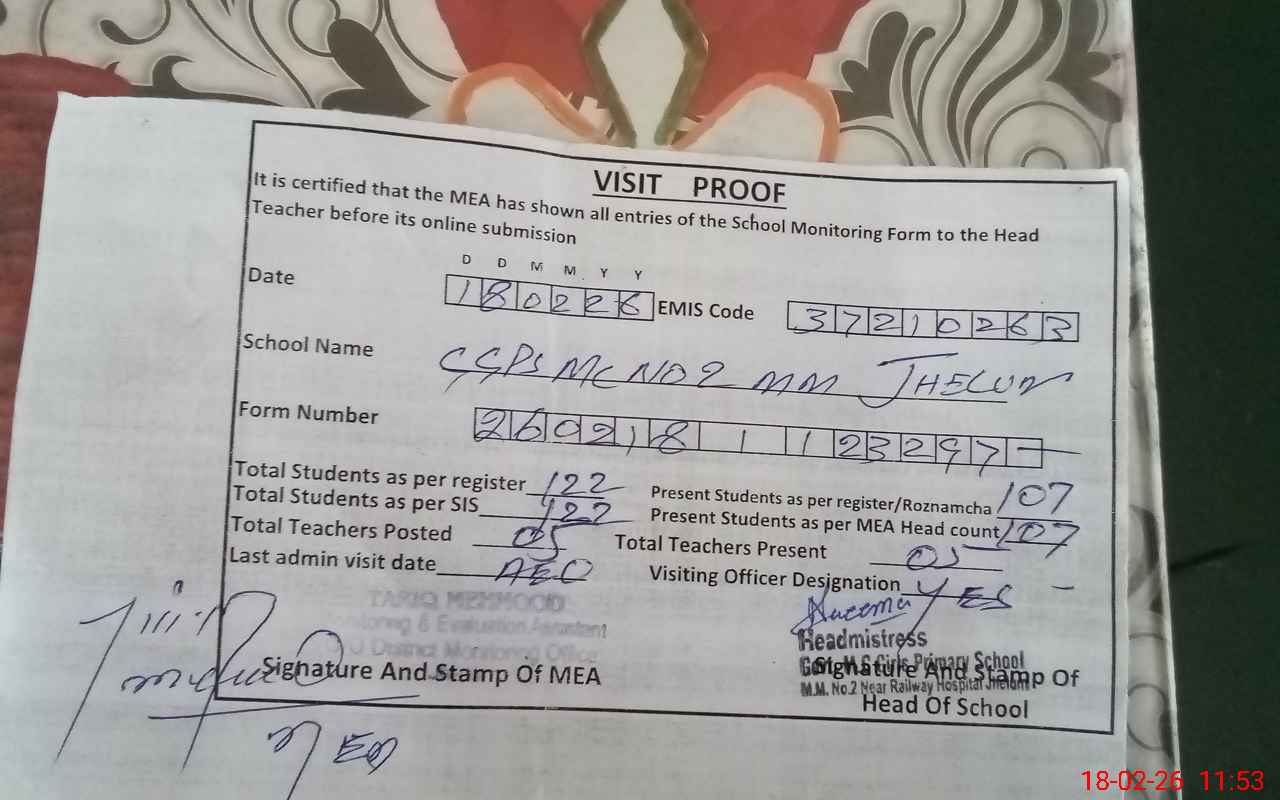 VISIT PROOF
It is certified that the MEA has shown all entries of the School Monitoring Form to the Head
Teacher before its online submission
D D M M Y Y
Date 180226 EMIS Code 37210263
School Name GGPS MC NO 2 MM JHELUM
Form Number 260218 1 123297
Total Students as per register 122 Present Students as per register/Roznamcha 107
Total Students as per SIS 122 Present Students as per MEA Head count 107
Total Teachers Posted 05 Total Teachers Present 05
Last admin visit date AEO Visiting Officer Designation YES -
TARIQ MEHMOOD
Monitoring & Evaluation Assistant
District Monitoring Office
Signature And Stamp Of MEA
Headmistress
Girls Primary School
M.M. No.2 Near Railway Hospital Jhelum
Signature And Stamp Of
Head Of School
MEA
18-02-26 11:53